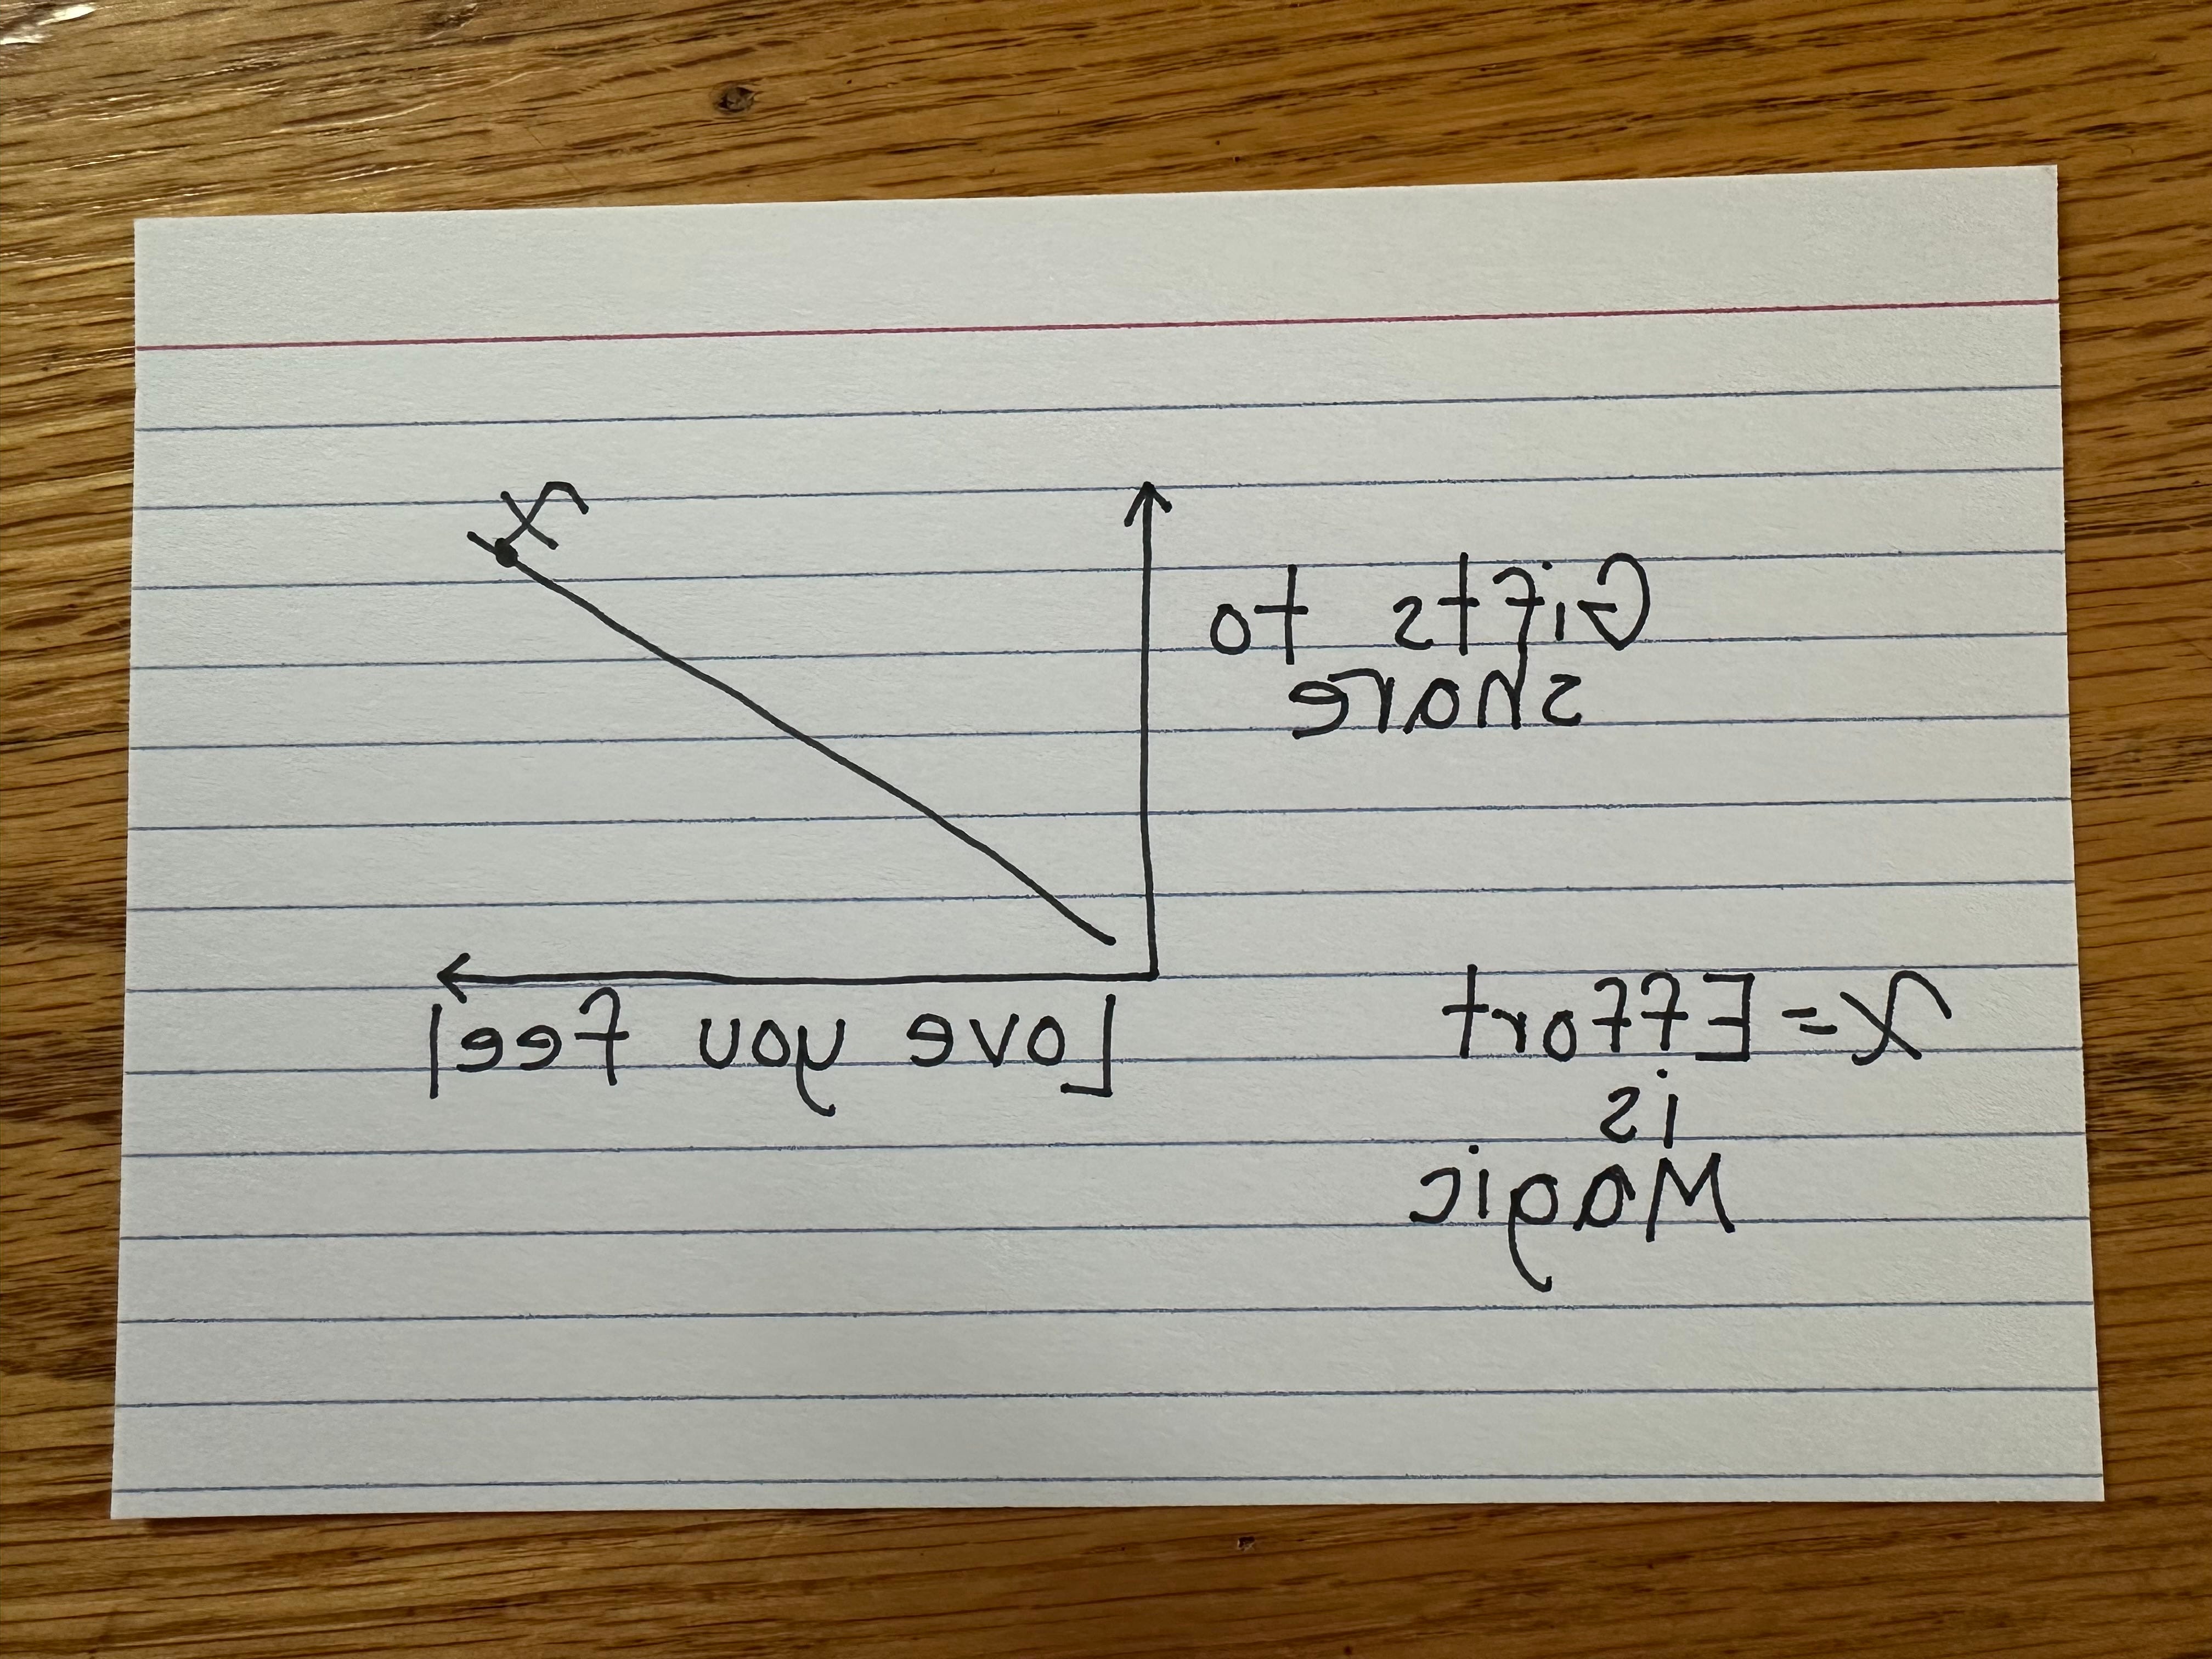 X
Gifts to
share
Love you feel
X = Effort
is
Magic